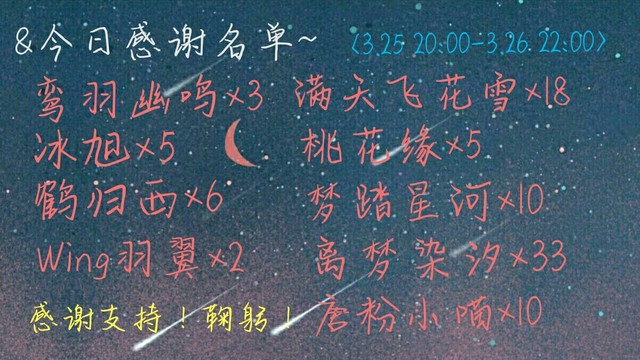 &今日感谢名单~ 〈3.25 20:00-3.26. 22:00〉
鸾羽幽鸣×3 满天飞花雪×18
冰旭×5 桃花缘×5
鹤归西×6 梦踏星河×10
Wing羽翼×2 离梦染汐×33
感谢支持！鞠躬！ 唐粉小喵×10